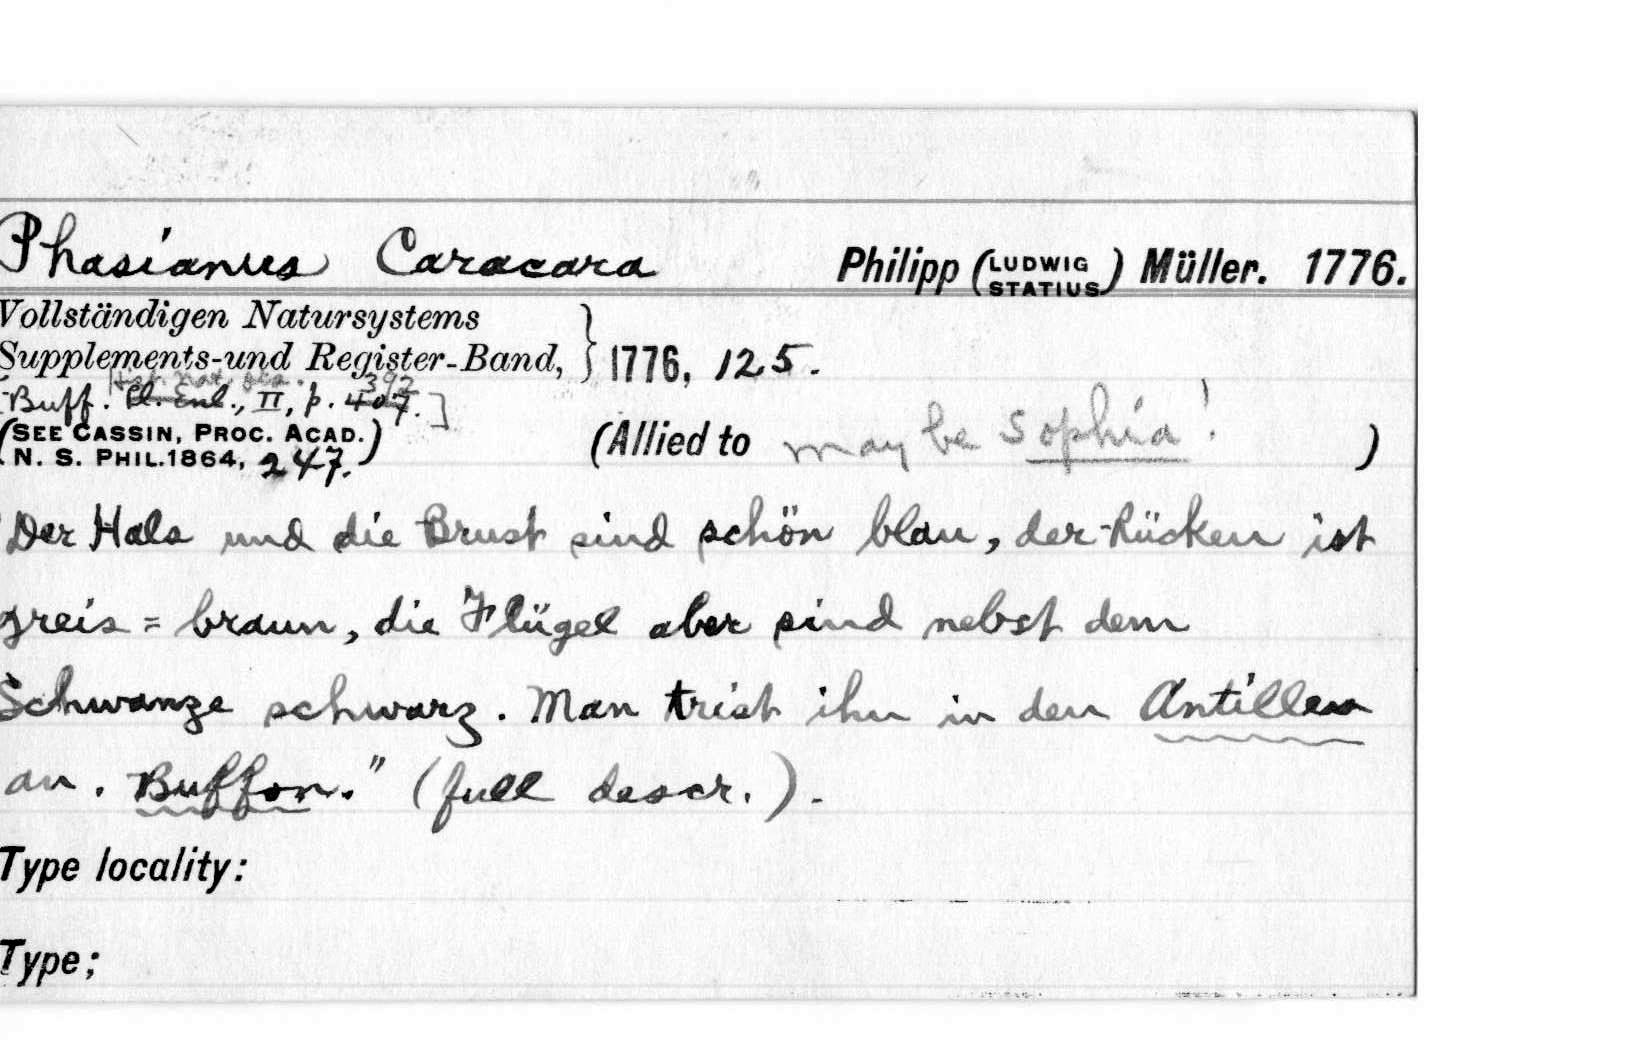 Phasianus Caracara Philipp (LUDWIG STATIUS) Müller. 1776.
Vollständigen Natursystems
Supplements-und Register-Band, } 1776, 125.
Hist. nat. ois. 392
[Buff. Pl. Enl., II, p. 407.]
(SEE CASSIN, PROC. ACAD.
N. S. PHIL. 1864, 247.)
(Allied to may be Sophia! )
"Der Hals und die Brust sind schön blau, der Rücken ist
greis = braun, die Flügel aber sind nebst dem
Schwanze schwarz. Man trist ihn in den Antillen
an. Buffon." (full descr.).
Type locality:
Type;